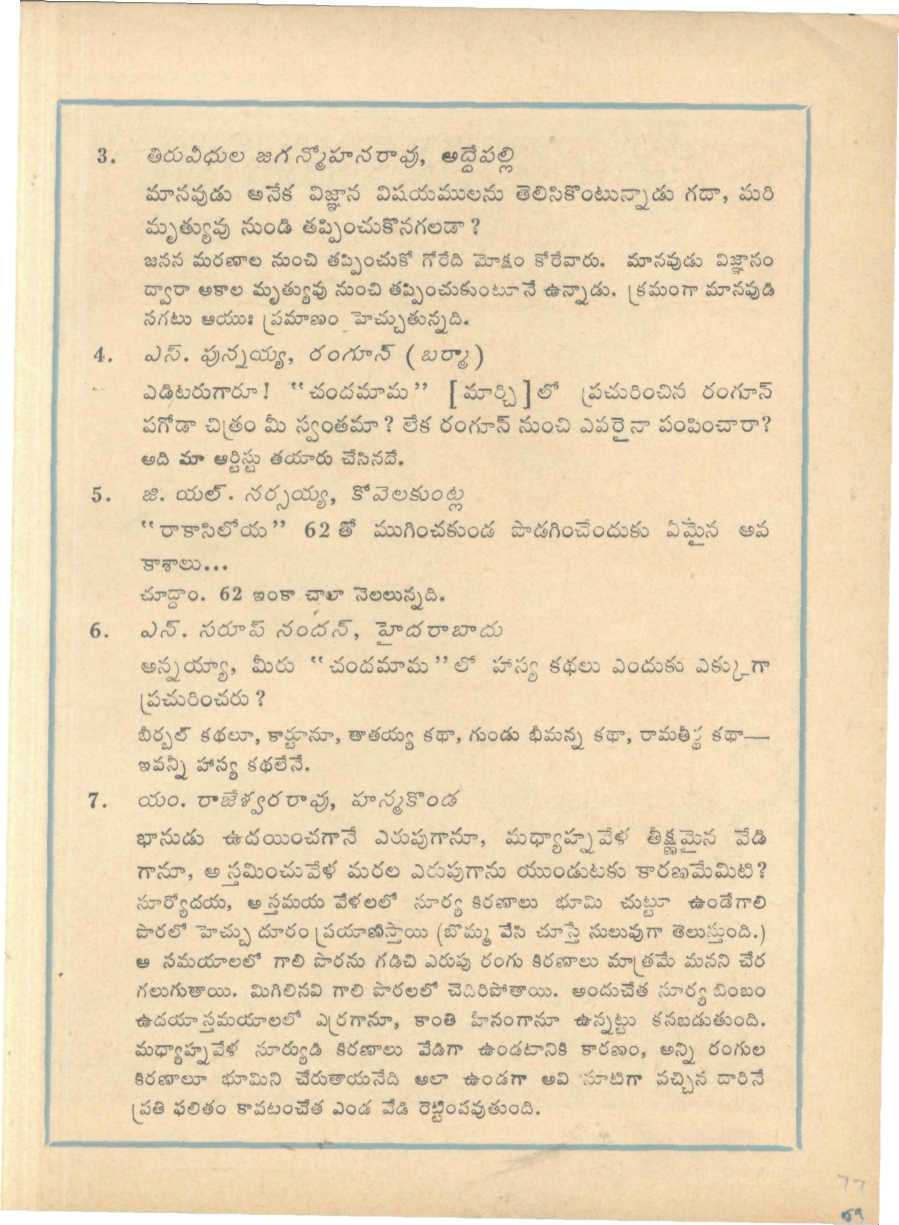 3. తిరువీధుల జగన్మోహనరావు, అద్దేపల్లి
మానవుడు అనేక విజ్ఞాన విషయములను తెలిసికొంటున్నాడు గదా, మరి
మృత్యువు నుండి తప్పించుకొనగలడా?
జనన మరణాల నుంచి తప్పించుకో గోరేది మోక్షం కోరేవారు. మానవుడు విజ్ఞానం
ద్వారా అకాల మృత్యువు నుంచి తప్పించుకుంటూనే ఉన్నాడు. క్రమంగా మానవుడి
సగటు ఆయుః ప్రమాణం హెచ్చుతున్నది.
4. ఎస్. పున్నయ్య, రంగూన్ (బర్మా)
ఎడిటరుగారూ! "చందమామ" [మార్చి]లో ప్రచురించిన రంగూన్
పగోడా చిత్రం మీ స్వంతమా? లేక రంగూన్ నుంచి ఎవరైనా పంపించారా?
అది మా ఆర్టిస్టు తయారు చేసినదే.
5. జి. యల్. నర్సయ్య, కోవెలకుంట్ల
"రాకాసిలోయ" 62 తో ముగించకుండ పొడగించేందుకు ఏమైన అవ
కాశాలు...
చూద్దాం. 62 ఇంకా చాలా నెలలున్నది.
6. ఎన్. సరూప్ నందన్, హైదరాబాదు
అన్నయ్యా, మీరు "చందమామ"లో హాస్య కథలు ఎందుకు ఎక్కుగా
ప్రచురించరు?
బీర్బల్ కథలూ, కార్టూనూ, తాతయ్య కథా, గుండు భీమన్న కథా, రామతీర్థ కథా—
ఇవన్నీ హాస్య కథలేనే.
7. యం. రాజేశ్వరరావు, హన్మకొండ
భానుడు ఉదయించగానే ఎరుపుగానూ, మధ్యాహ్నవేళ తీక్ష్ణమైన వేడి
గానూ, అస్తమించువేళ మరల ఎరుపుగాను యుండుటకు కారణమేమిటి?
సూర్యోదయ, అస్తమయ వేళలలో సూర్య కిరణాలు భూమి చుట్టూ ఉండేగాలి
పొరలో హెచ్చు దూరం ప్రయాణిస్తాయి (బొమ్మ వేసి చూస్తే సులువుగా తెలుస్తుంది.)
ఆ సమయాలలో గాలి పొరను గడిచి ఎరుపు రంగు కిరణాలు మాత్రమే మనని చేర
గలుగుతాయి. మిగిలినవి గాలి పొరలలో చెదిరిపోతాయి. అందుచేత సూర్య బింబం
ఉదయాస్తమయాలలో ఎర్రగానూ, కాంతి హీనంగానూ ఉన్నట్టు కనబడుతుంది.
మధ్యాహ్నవేళ సూర్యుడి కిరణాలు వేడిగా ఉండటానికి కారణం, అన్ని రంగుల
కిరణాలూ భూమిని చేరుతాయనేది అలా ఉండగా అవి సూటిగా వచ్చిన దారినే
ప్రతి ఫలితం కావటంచేత ఎండ వేడి రెట్టింపవుతుంది.
77